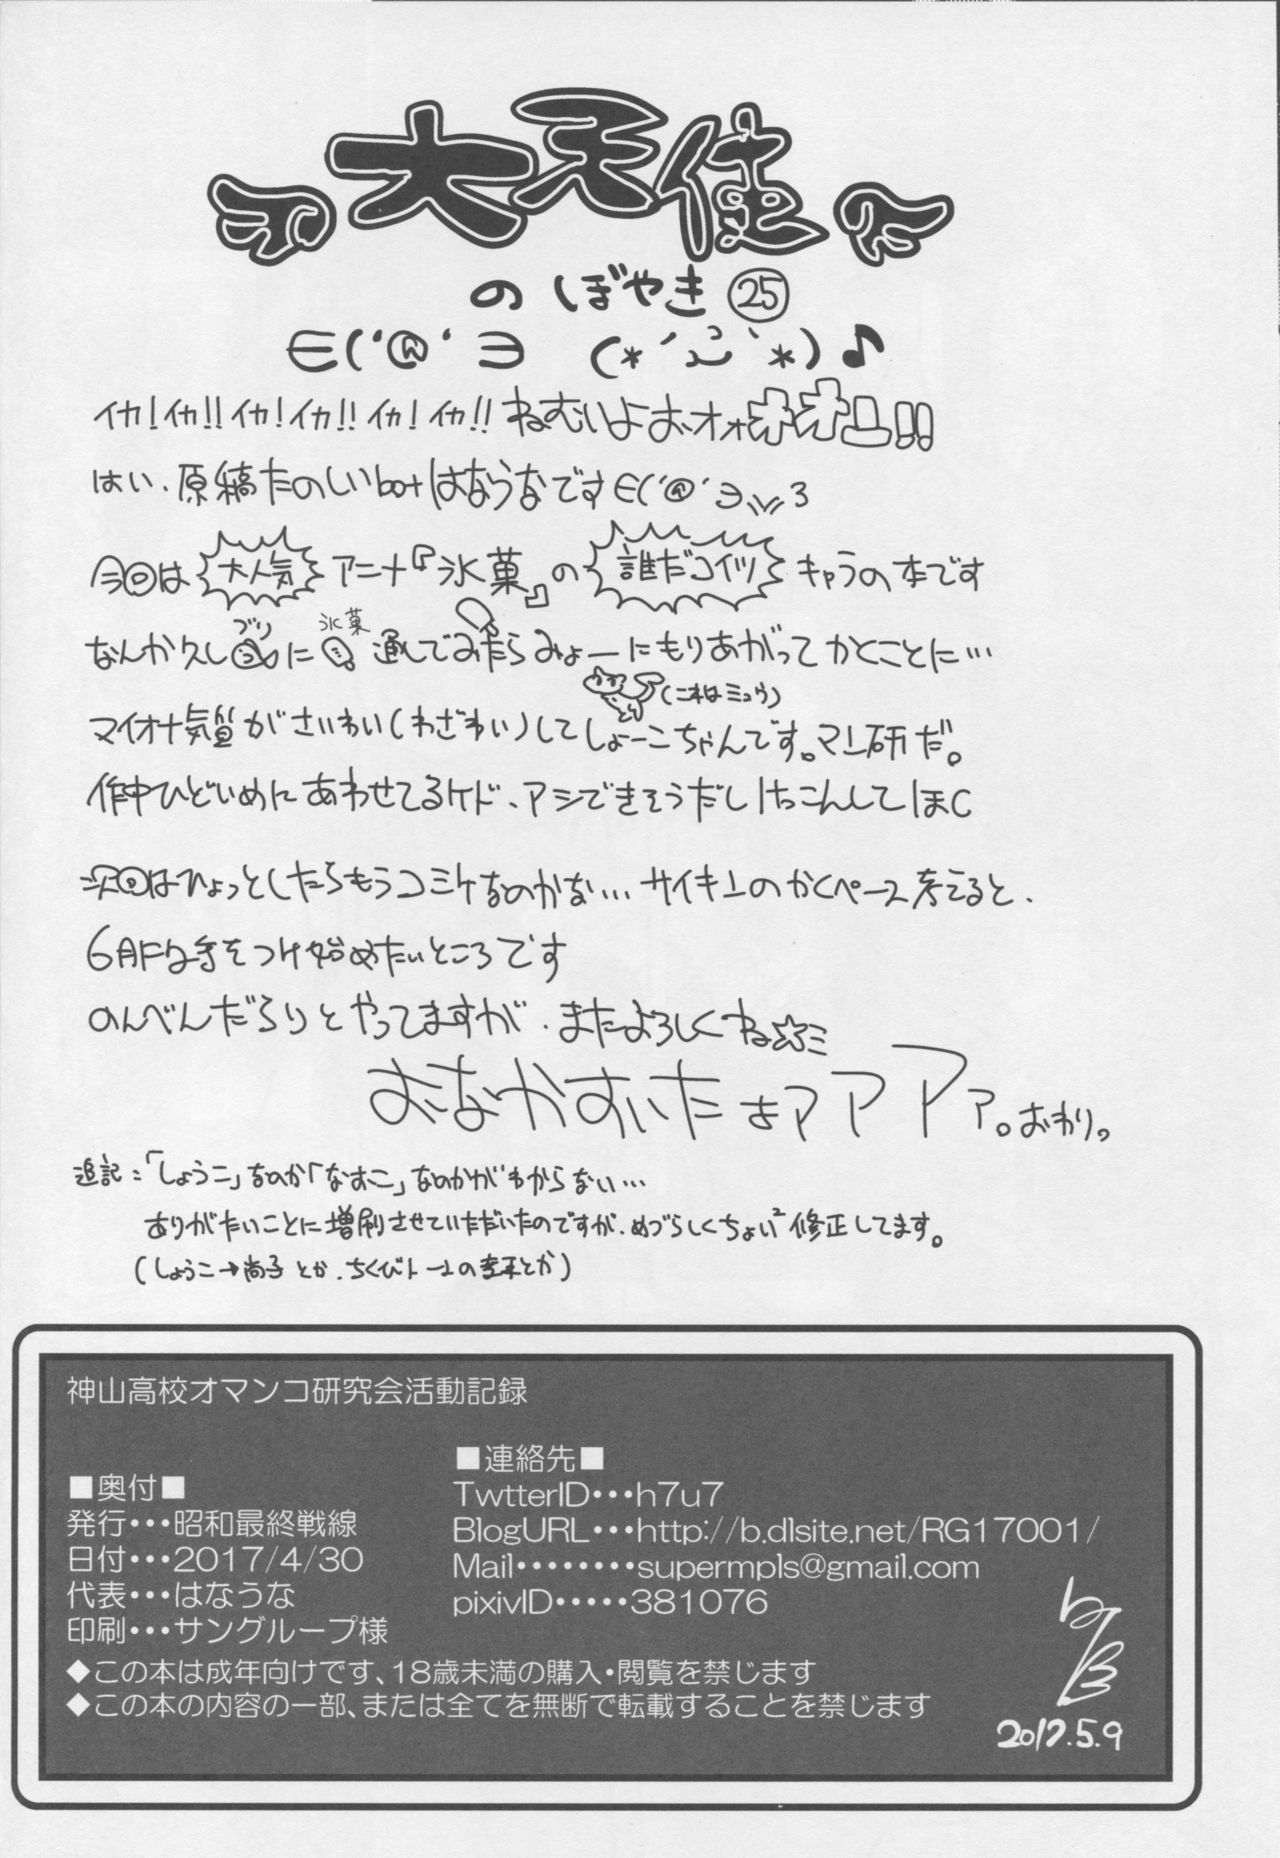 大天使
のぼやき㉕
∈('@'∋ (*´ω｀*)♪
イカ!イカ!!イカ!イカ!!イカ!イカ!!ねむいよぉオォオオー!!
はい、原稿たのしいbotはなうなです∈('@'∋ 3
今回は大人気アニメ『氷菓』の誰だコイツキャラの本です
なんか久しぶりに氷菓通しでみたらみょーにもりあがってかくことに…
(これはミュウ)
マイナー気質がさいわい(わざわい)してしょーこちゃんです。マン研だ。
作中ひどいめにあわせてるケド、アシできそうだしけっこんしてほC
次回はひょっとしたらもうコミケなのかな…サイキンのかくペース考えると、
6月FA手をつけ始めたいところです
のんべんだらりとやってますが、またよろしくね☆ミ
おなかすいたよァアアァ。おわり。
追記:「しょうこ」なのか「なおこ」なのかがわからない…
ありがたいことに増刷させていただいたのですが、めづらしくちょい²修正してます。
(しょうこ→尚子とか、ちくびトーンの差とか)
神山高校オマンコ研究会活動記録
■奥付■
発行•••昭和最終戦線
日付•••2017/4/30
代表•••はなうな
印刷•••サングループ様
■連絡先■
TwtterID•••h7u7
BlogURL•••http://b.dlsite.net/RG17001/
Mail••••••••supermpls@gmail.com
pixivID•••••381076
◆この本は成年向けです、18歳未満の購入・閲覧を禁じます
◆この本の内容の一部、または全てを無断で転載することを禁じます
2017.5.9